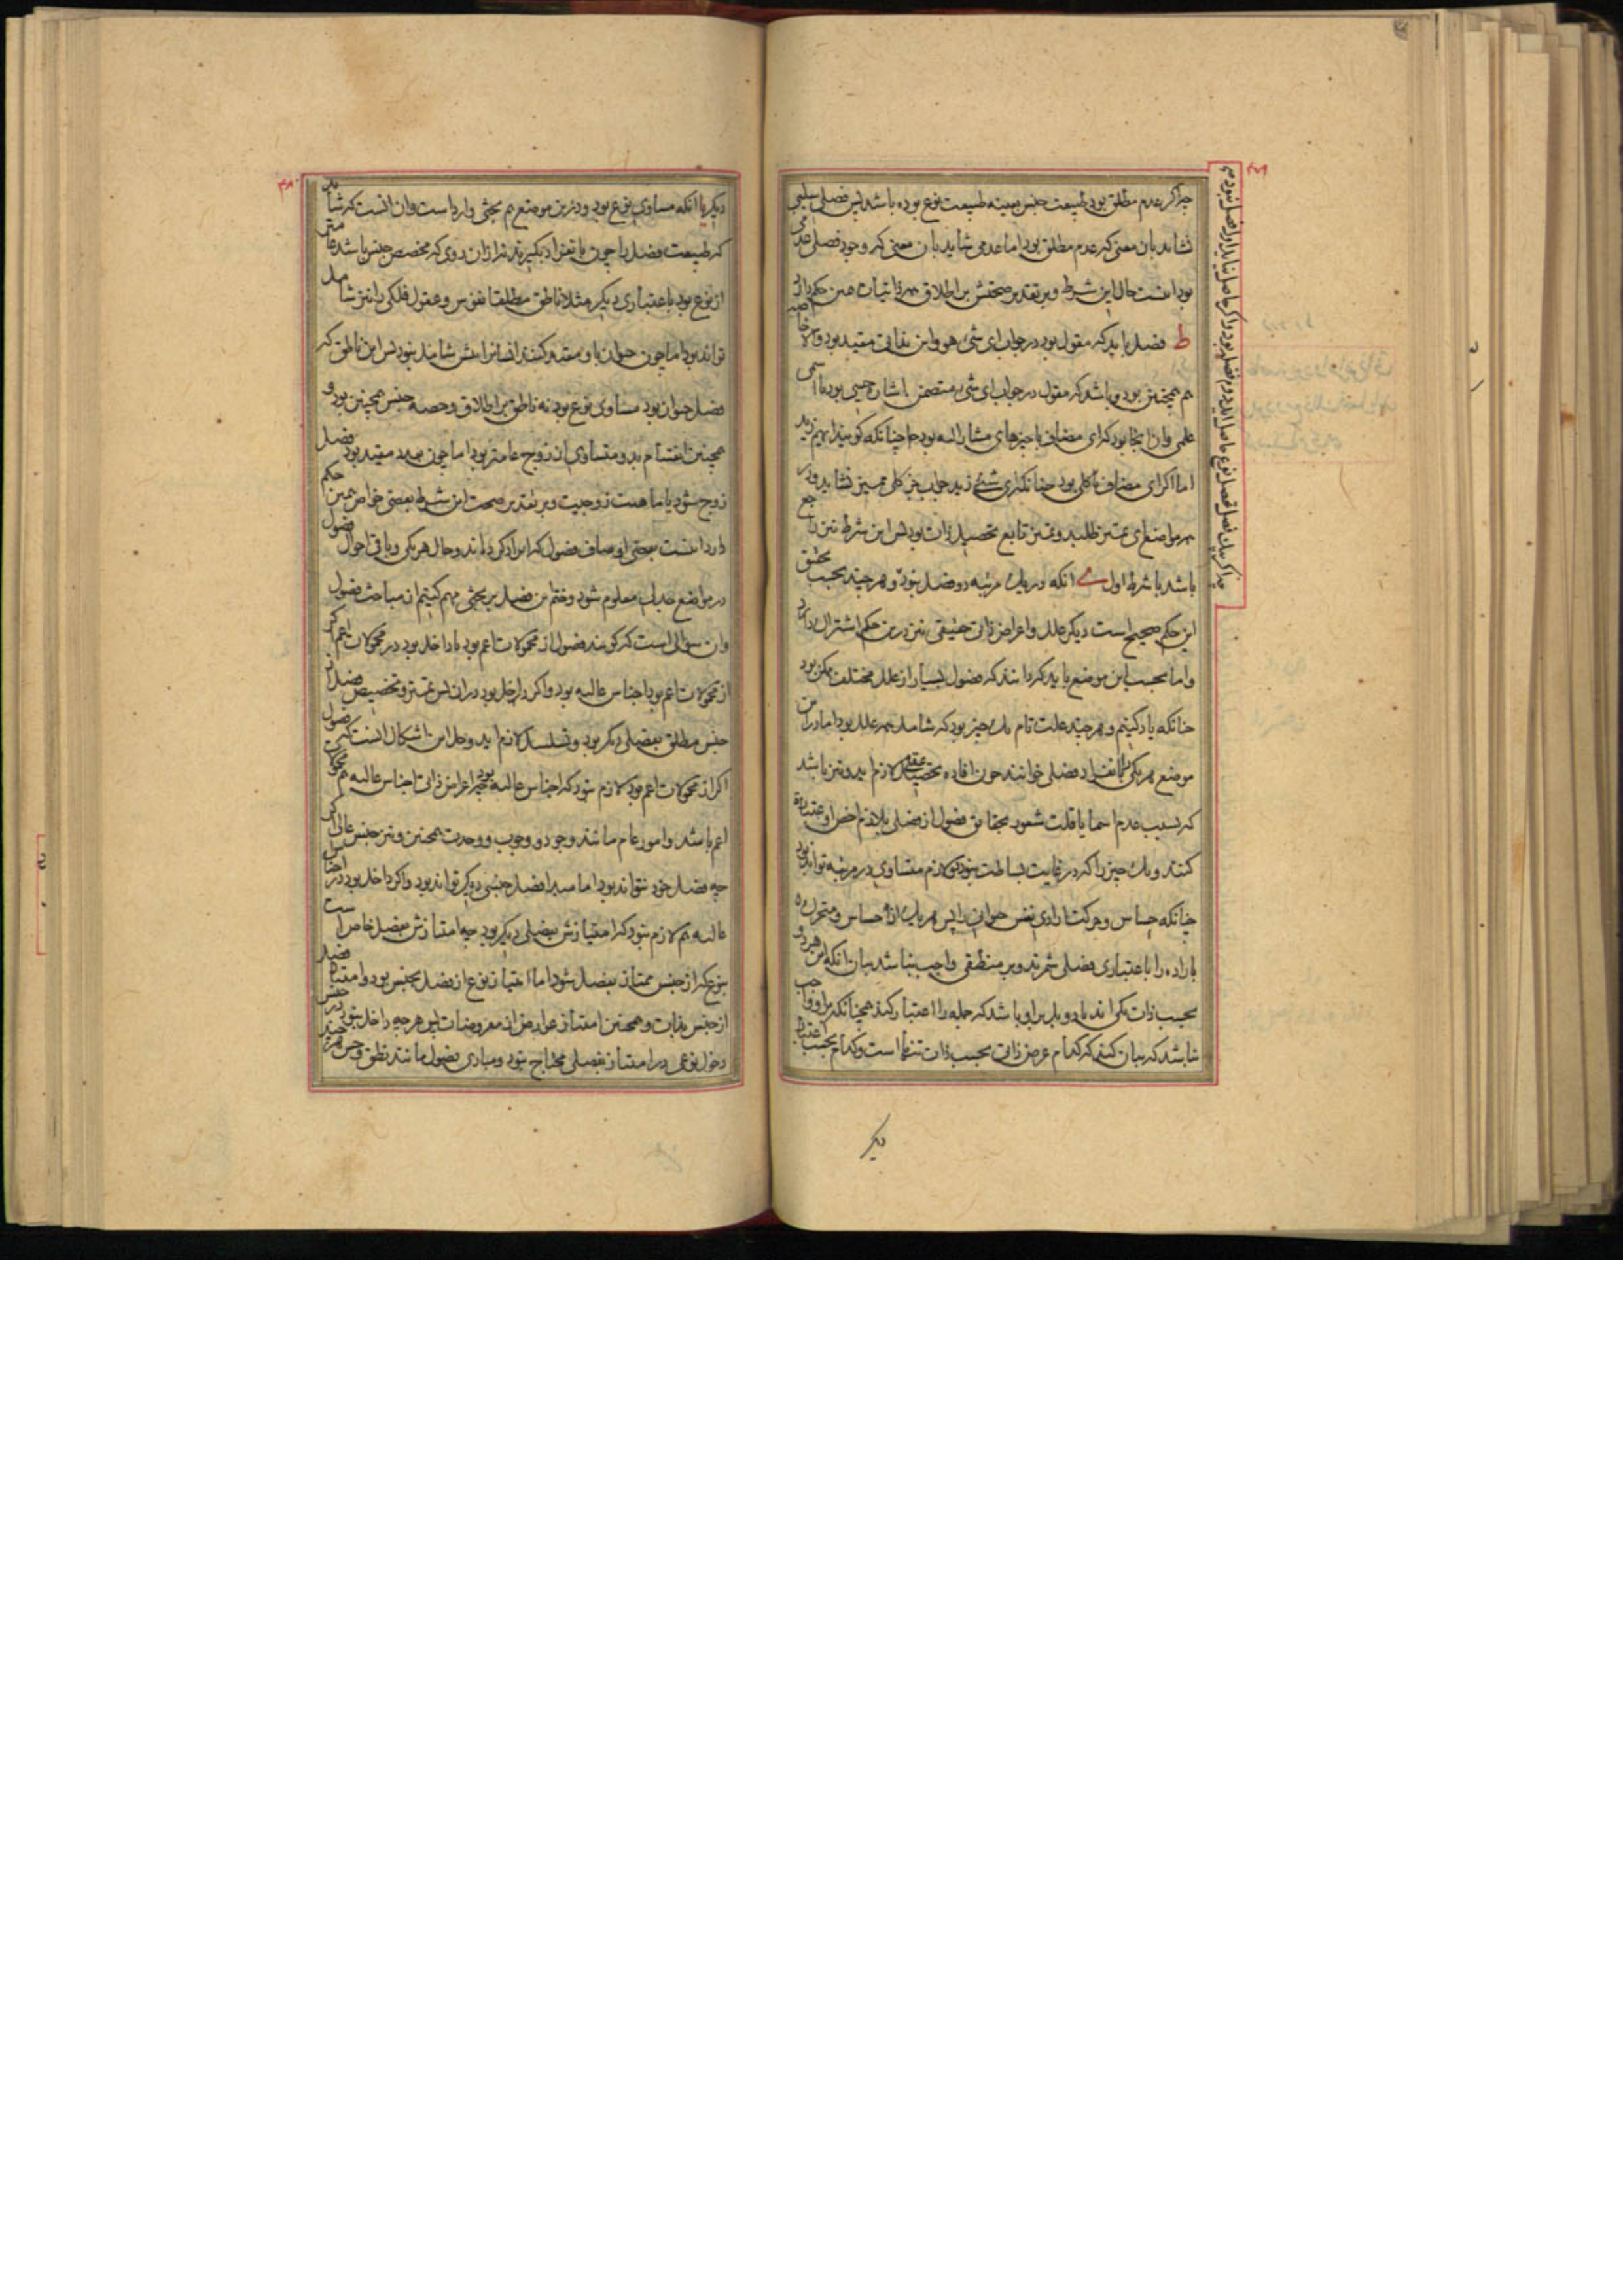 چه اگر عدم مطلق بود طبیعت جنس بعینه طبیعت نوع بوده باشد پس فصل سلبی
نشاید بان معنی که عدم مطلق بود اما عدمی شاید بان معنی که وجود فصلی عدمی
بود اینست حال این شرط و بر تقدیر صحتش بر اطلاق همه ذاتیات همین حکم دارد
ط فصل باید که مقول بود در جواب ای شی هو و این بذاتی مقید بود و الا خاصه
هم همچنین بود و باشد که مقول در جواب ای شی متضمن اشارت حسی بود یا اسمی
علمی و ان انجا بود که ای مضاف با چیزهای مشار الیه بود چنانکه کویند ایهم زید
اما اکر ای مضاف با کلی بود چنانکه ای شئ زید جواب جز کلی ممیز نشاید و در
همه مواضع ای تمییز طلبد و تمییز تابع تحصیل ذات بود پس این شرط نیز راجع
باشد با شرط اول ی انکه در یک مرتبه دو فصل نبود و هر چند بحسب تحقیق
این حکم صحیح است دیکر علل و اعراض ذاتی حقیقی نیز درین حکم اشتراک دارد
و اما بحسب این موضع باید که دانند که فصول بسیار از علل مختلف ممکن بود
چنانکه یاد کنیم و هر چند علت تام یک چیز بود که شامل همه علل بود اما در این
موضع هر یکی را بانفراد فصلی خوانند چون افاده تحصیل عقلی لازم اید و نیز باشد
که بسبب عدم اسما یا قلت شعور بحقایق فصول از فصلی بلازم اخص او عبارت
کنند و یک چیز را که در غایت بساطت نبود دو لازم متساوی در مرتبه تواند بود
چنانکه حساس و حرکت ارادی نفس حیوانی را پس هر یک از حساس و متحرک
باراده را باعتباری فصلی شمرند و بر منطقی واجب نباشد بیان انکه این هر دو
بحسب ذات یکی اند یا دو بل بر او باشد که جمله را اعتبار کند همچنانکه بر او واجب
نباشد که بیان کند که کدام عرض ذاتی بحسب ذات تنهاست و کدام بحسب اعتبار
دیکر
دیکر یا انکه مساوی نوع بود و درین موضع هم بحثی وارد است و ان انست که شاید
که طبیعت فصل را چون بانفراد بکیرند نه از ان روی که مخصص جنس باشد عامتر
از نوع بود باعتباری دیکر مثلا ناطق مطلقا نفوس و عقول فلکی را نیز شامل
تواند بود اما چون حیوان با او مقید کنند انسان را بیش شامل نبود پس این ناطق که
فصل حیوان بود مساوی نوع بود نه ناطق بر اطلاق و حصه جنس همچنین بود و
همچنین انقسام بدو متساوی از زوج عامتر بود اما چون بعدد مقید بود فصل
زوج شود یا ماهیت زوجیت و بر تقدیر صحت این شرط بعضی خواص همین حکم
دارد اینست بعضی اوصاف فصول که ایراد کرده اند و حال هر یکی و باقی احوال فصول
در مواضع جدل معلوم شود و ختم این فصل بر بحثی مهم کنیم از مباحث فصول
و ان سؤالی است که کویند فصول از محمولات اعم بود یا داخل بود در محمولات اعم اکر
از محمولات اعم بود اجناس عالیه بود و اکر داخل بود در ان پس تمییز و تخصیص فصل از
جنس مطلق بفصلی دیکر بود و تسلسل لازم اید و حل این اشکال انست که فصول
اکر از محمولات اعم بود لازم نبود که اجناس عالیه بود چه اعراض ذاتی اجناس عالیه هم محمول
اعم باشد و امور عام مانند وجود و وجوب و وحدت همچنین و نیز جنس عالی اکر
چه فصل خود نتواند بود اما مبدا فصل جنسی دیکر تواند بود و اکر داخل بود در اجناس
عالیه هم لازم نبود که امتیازش بفصلی دیکر بود چه امتیازش بفصل خاص است
نوع که از جنس ممتاز بفصل شود اما امتیاز نوع از فصل بجنس بود و امتیاز فصل
از جنس بذات و همچنین امتیاز عوارض از معروضات پس هر چه داخل نبود در جنس
دخول نوعی در امتیاز بفصلی محتاج نبود و مبادی فصول مانند نطق و حس هر چند